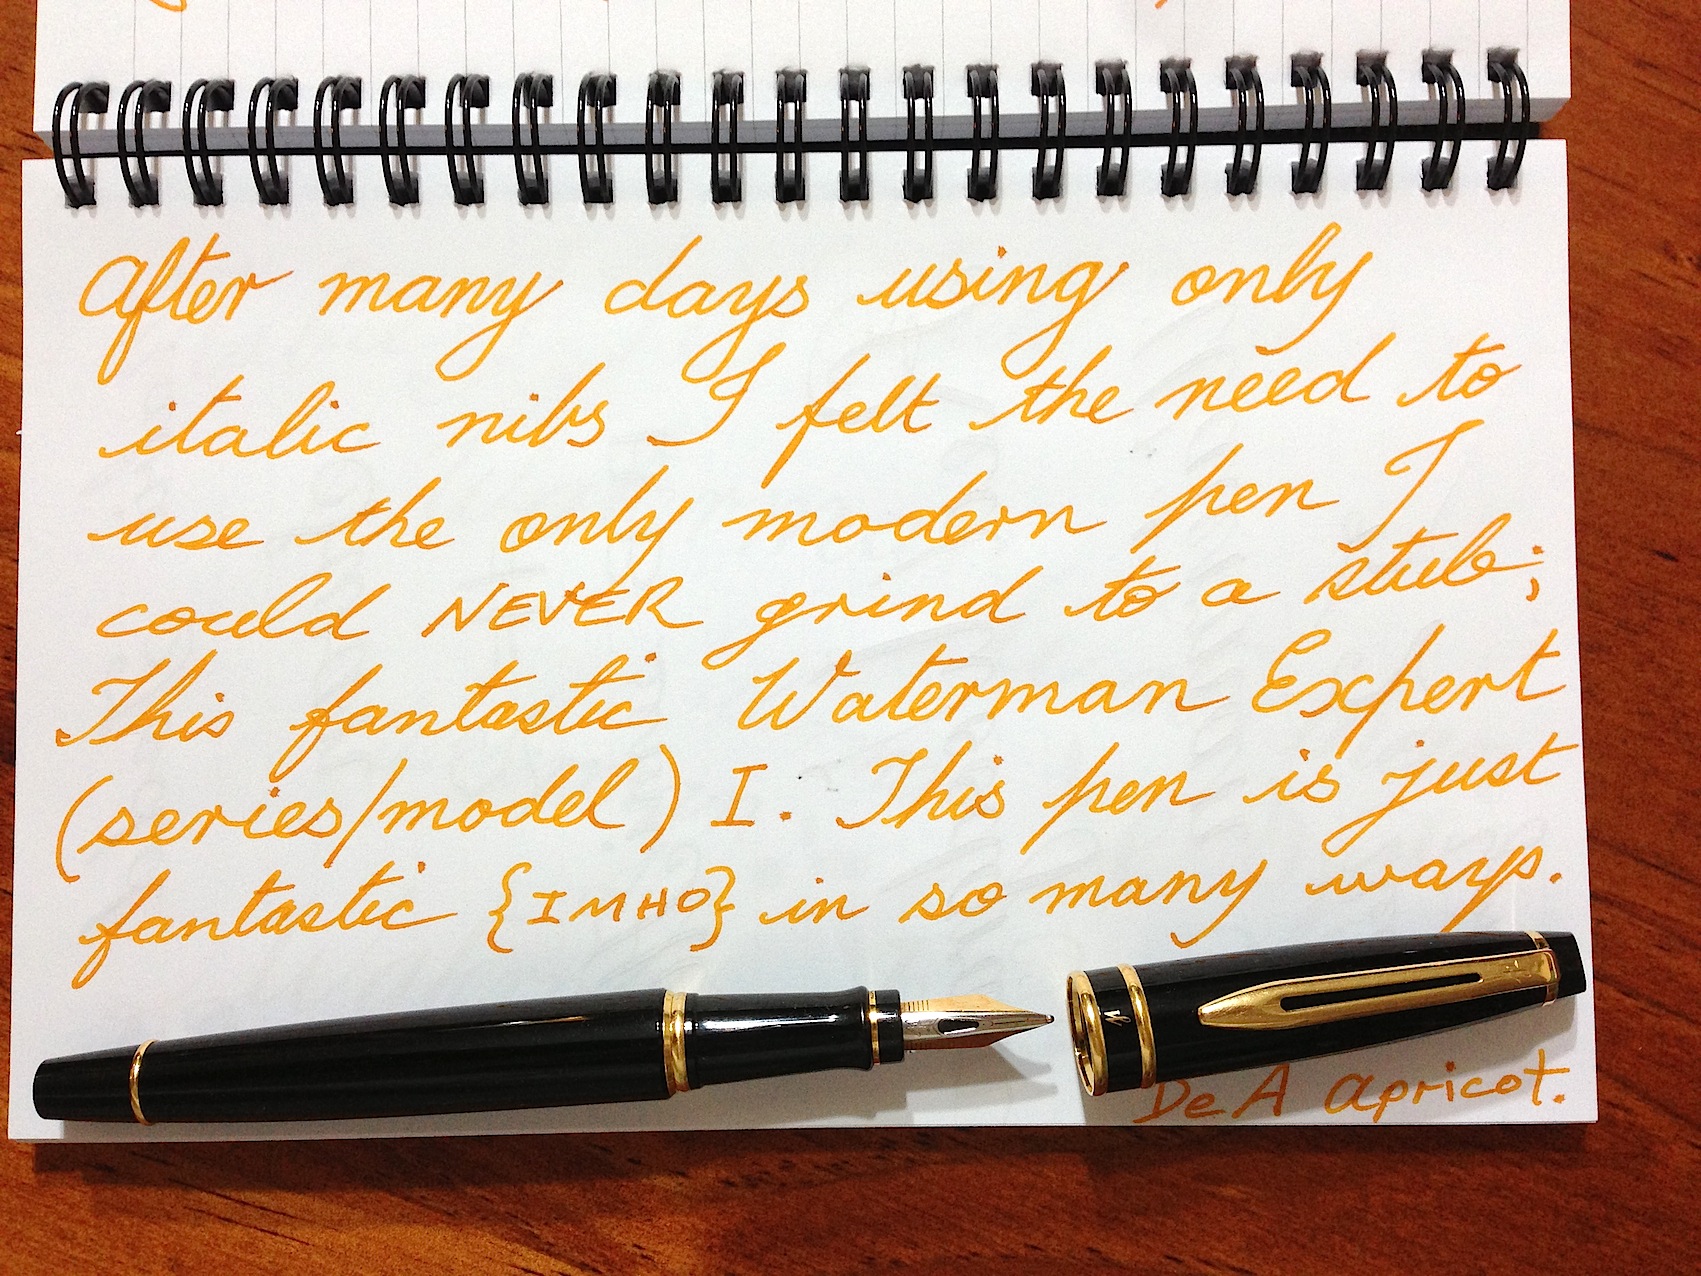 After many days using only
italic nibs I felt the need to
use the only modern pen I
could NEVER grind to a stub;
This fantastic Waterman Expert
(series/model) I. This pen is just
fantastic {IMHO} in so many ways.
De A apricot.